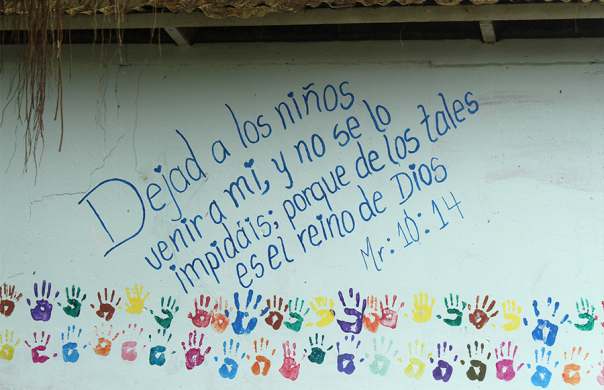 Dejad a los niños
venir a mi, y no se lo
impidáis; porque de los tales
es el reino de Dios
Mr: 10: 14